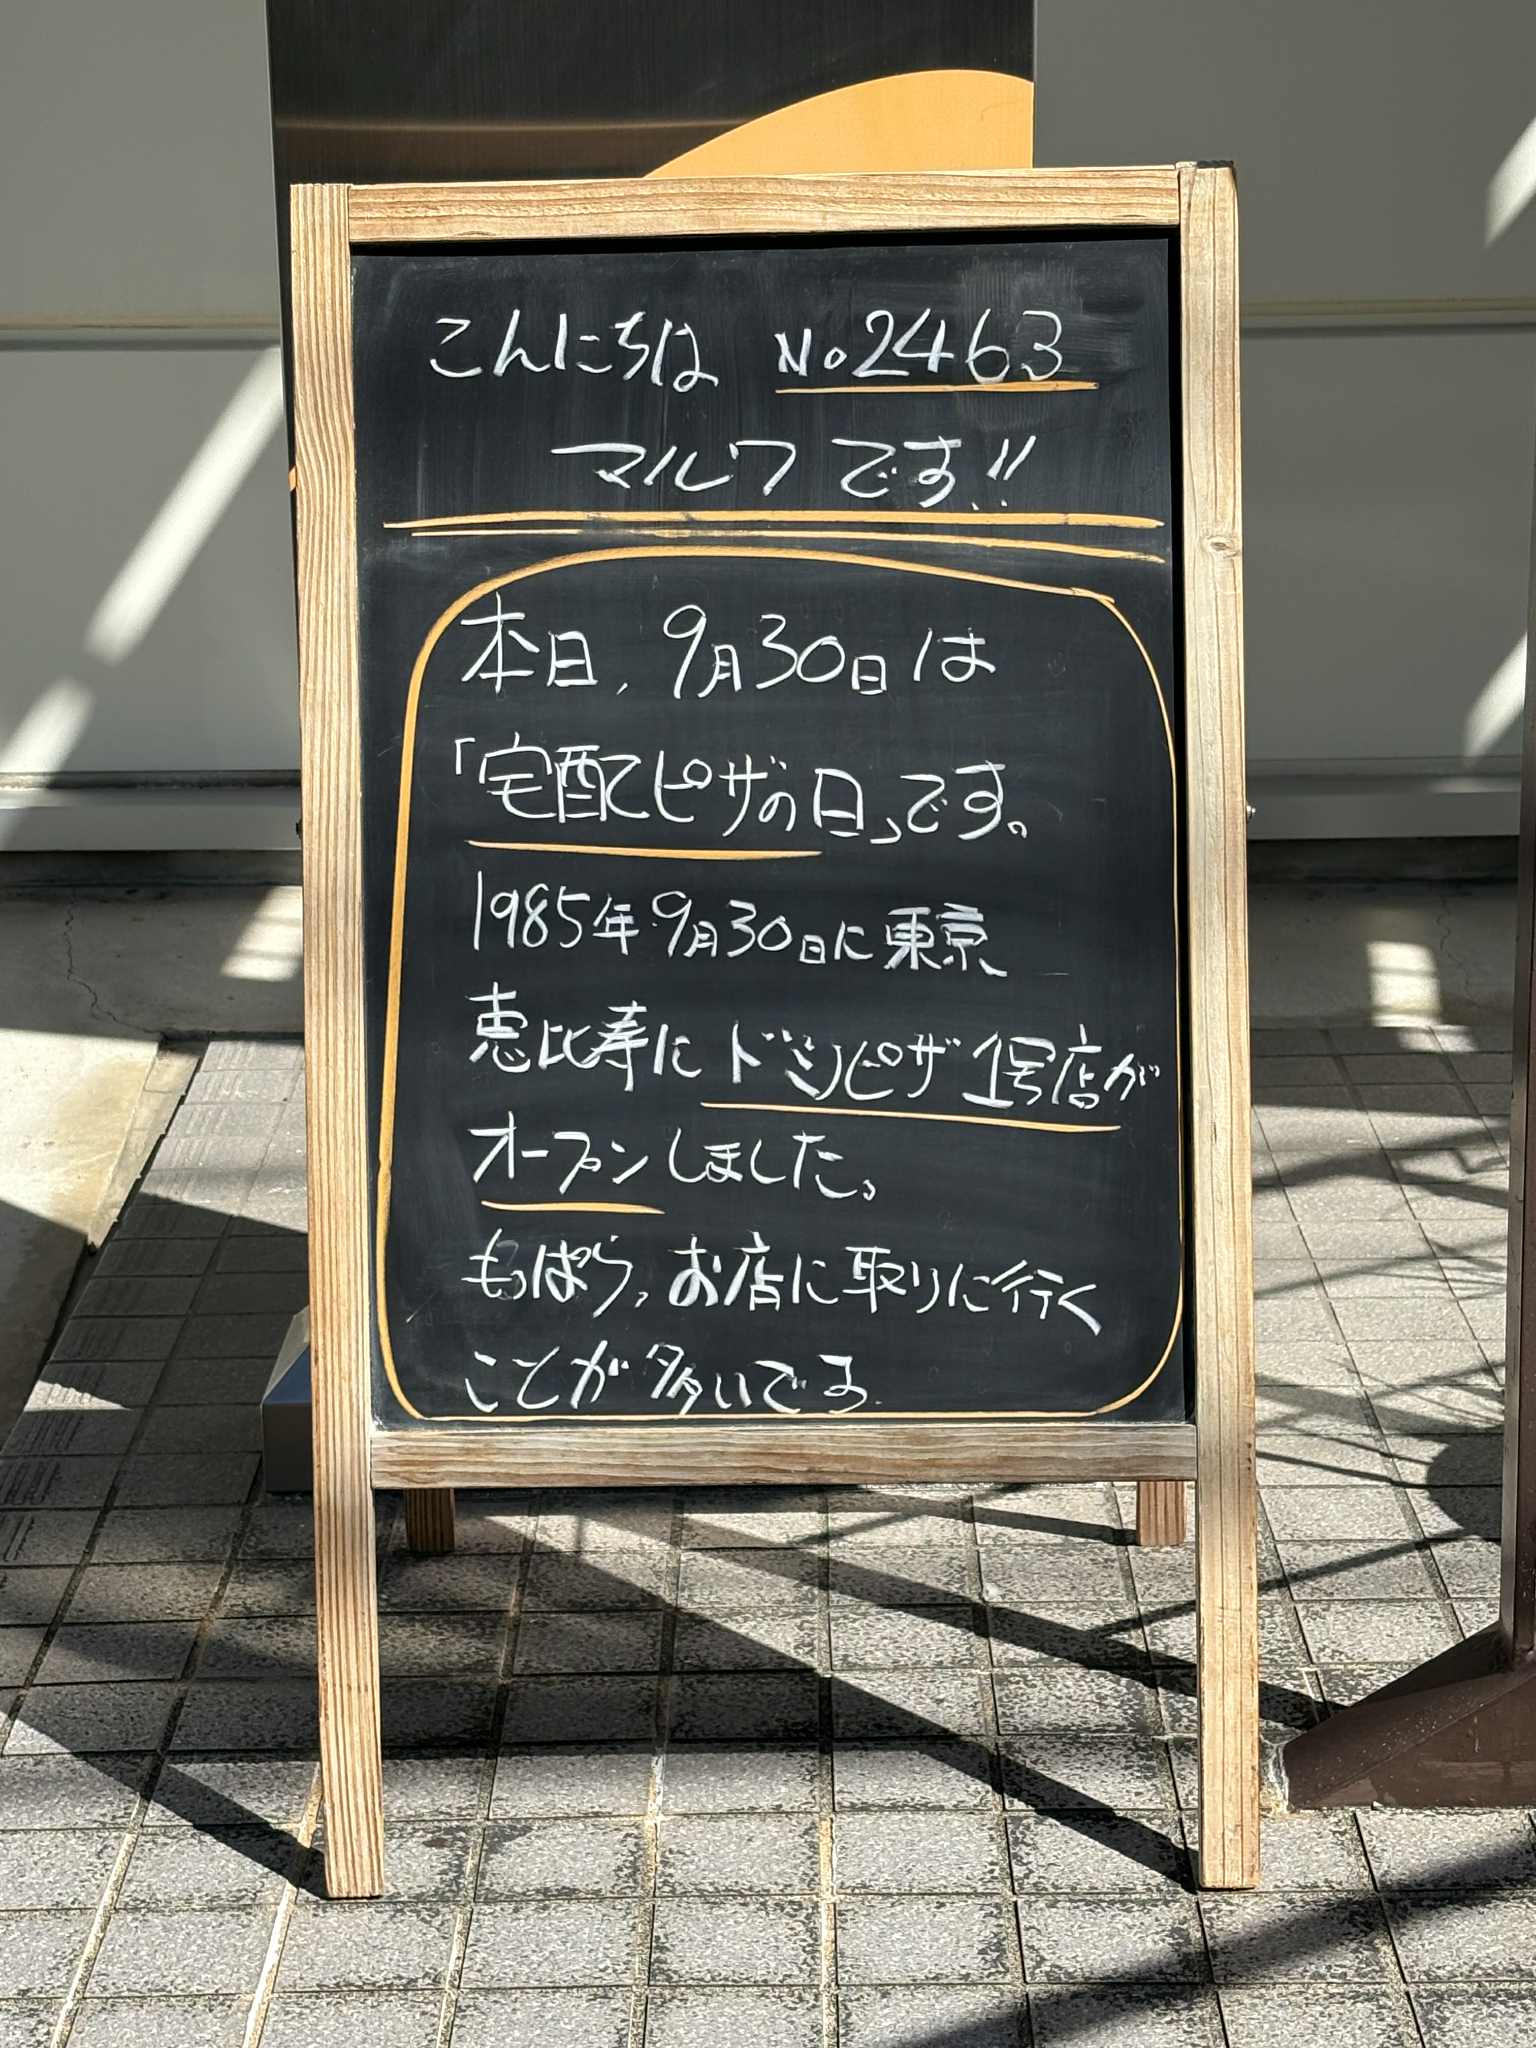 こんにちは No2463
マルワです!!
本日、9月30日は
「宅配ピザの日」です。
1985年9月30日に東京
恵比寿にドミノピザ1号店が
オープンしました。
もっぱら、お店に取りに行く
ことが多いです